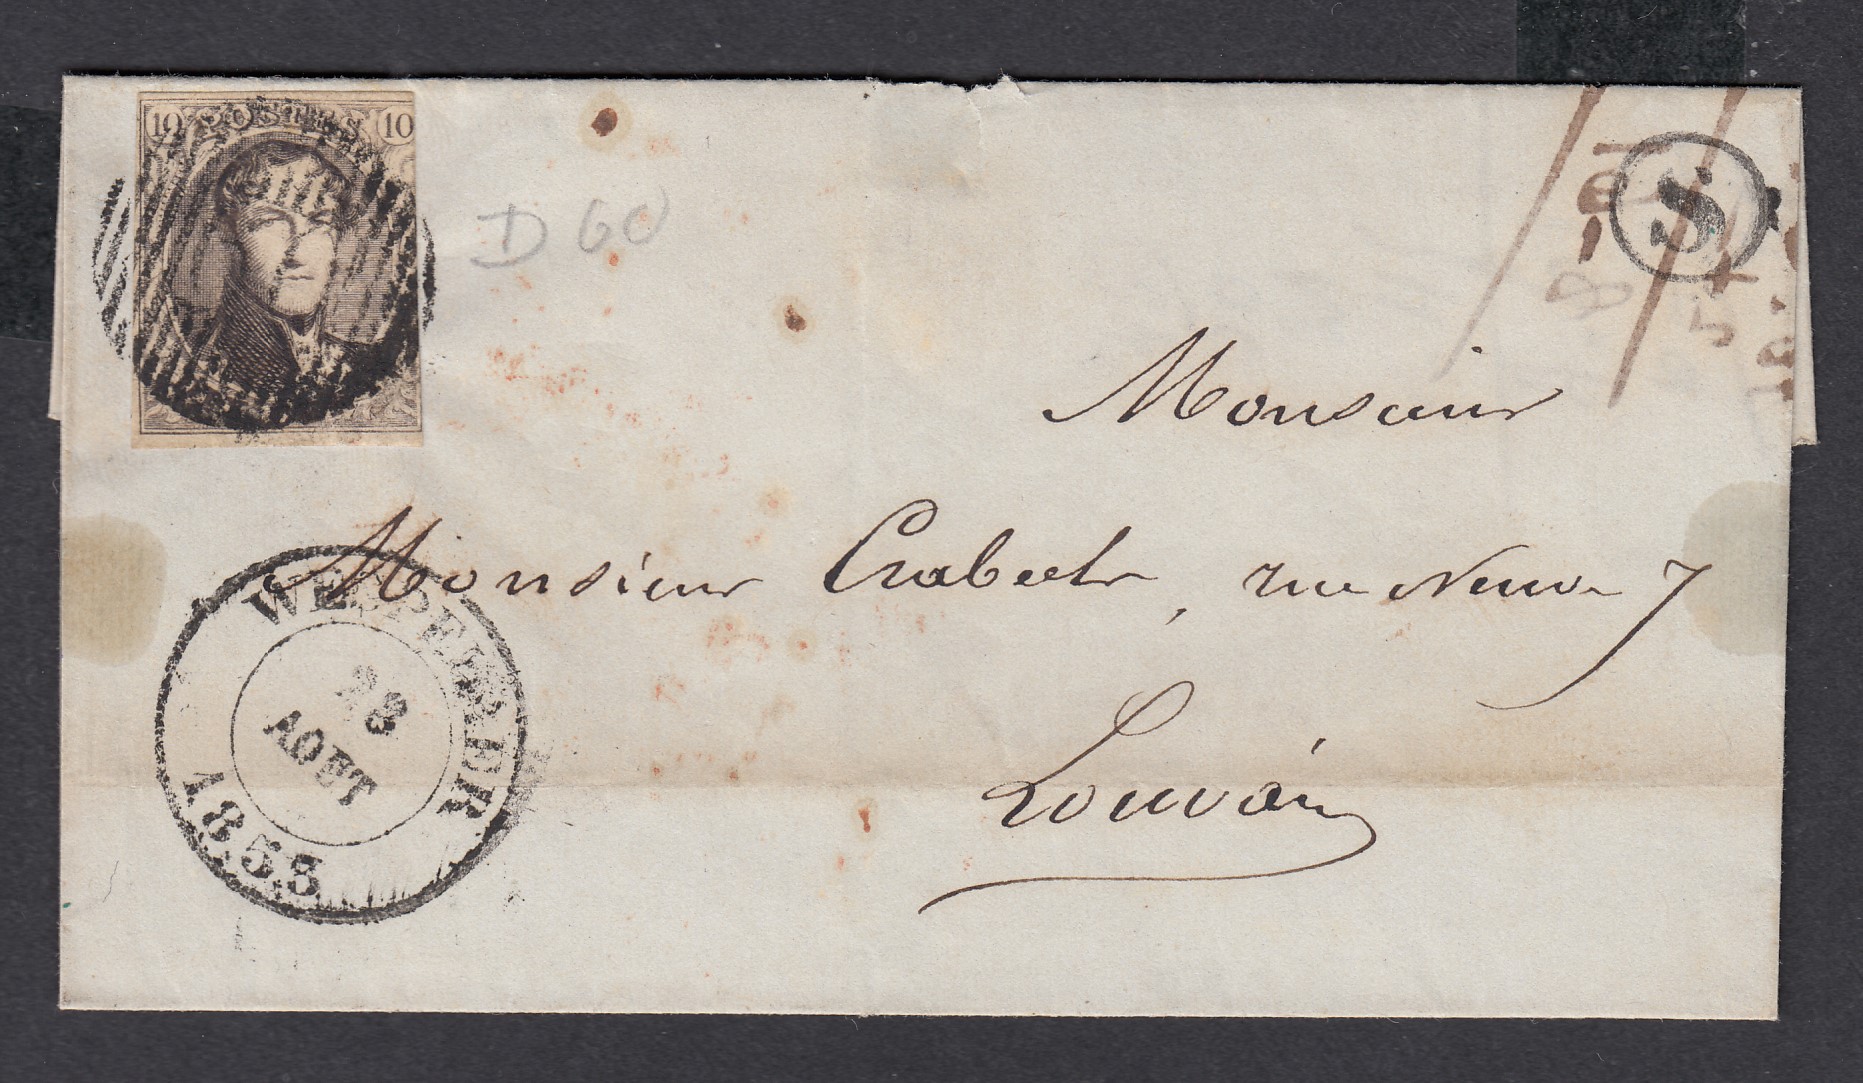 10 POSTES 10
D 60
S
Monsieur
Monsieur Crabeels, rue Neuve 7
Louvain
WESPELAER
28
AOUT
1853